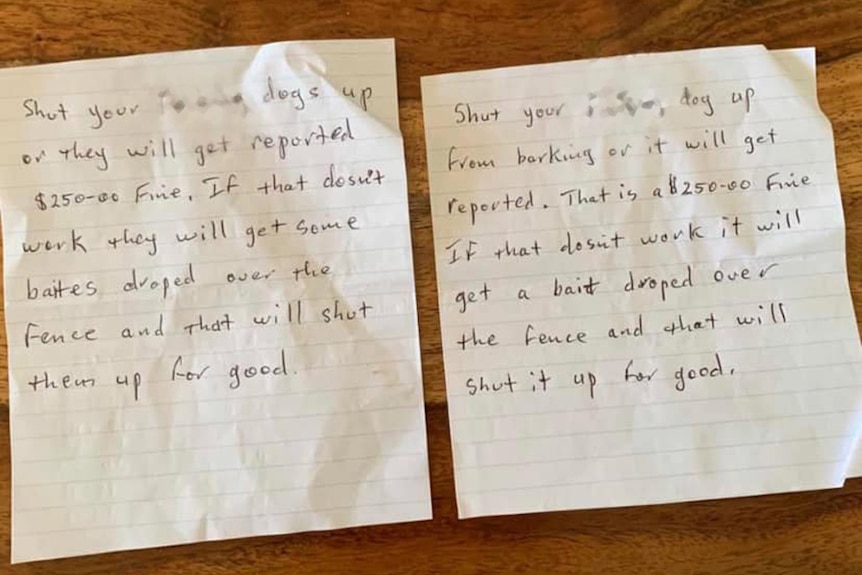 Shut your dogs up
or they will get reported
$250-00 Fine. If that dosn't
work they will get some
baites droped over the
Fence and that will shut
them up for good.
Shut your dog up
from barking or it will get
reported. That is a $250-00 Fine
IF that dosn't work it will
get a bait droped over
the fence and that will
shut it up for good.